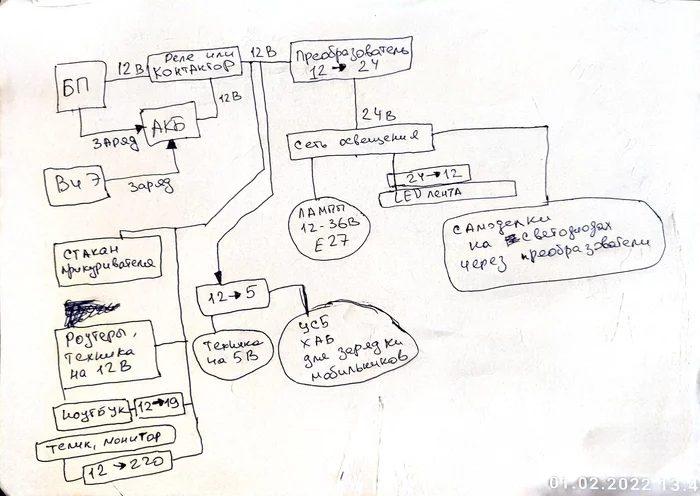 БП
12В
Реле или
контактор
12В
Преобразователь
12 → 24
12В
АКБ
заряд
ВиЭ
заряд
24В
Сеть освещения
24→12
LED лента
Лампы
12-36В
Е27
самоделки
на светодиодах
через преобразователи
стакан
прикуривателя
12→5
Техника
на 5В
УСБ
ХАБ
для зарядки
мобильников
Роутеры,
техника
на 12В
ноутбук
12→19
телик, монитор
12 → 220
01.02.2022 13:4